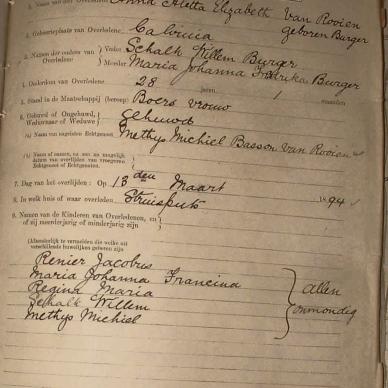 Anna Aletta Elizabeth Van Rooien
geboren Burger
2. Geboorteplaats van Overledene: Calvinia
3. Namen der ouders van Overledene: Vader Schalk Willem Burger
Moeder Maria Johanna Burger
4. Ouderdom van Overledene: 28 jaren 1 maanden
5. Stand in de Maatschappij (beroep) Boers vrouw
6. Gehuwd of Ongehuwd, Weduwnaar of Weduwe Gehuwd
(a) Naam van nagelaten Echtgenoot Methys Michiel Basson Van Rooien
(b) Naam of namen, en zoo na mogelijk
datum van overlijden van vroegeren
Echtgenoot of Echtgenooten.
7. Dag van het overlijden: Op 13 den Maart 1894
8. In welk huis of waar overleden Struisputs
9. Namen de Kinderen van Overledenen, en
of zij meerderjarig of minderjarig zijn
(Afzonderlijk te vermelden die welke uit
verschillende huwelijken geboren zijn
Renier Jacobus
Maria Johanna Francina
Regina Maria
Schalk Willem
Methys Michiel
Allen
onmondig